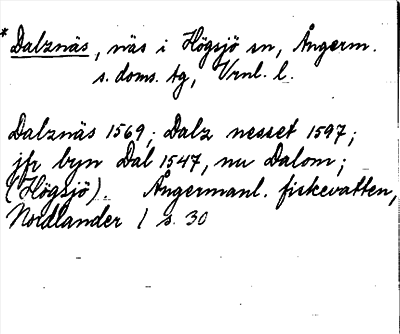 * Dalznäs, näs i Högsjö sn, Ångerm.
s. doms. tg, Vrnl. l.
Dalznäs 1569; Dalz nesset 1597;
jfr byn Dal 1547, nu Dalom;
(Högsjö). Ångermanl. fiskevatten,
Nordlander / s. 30